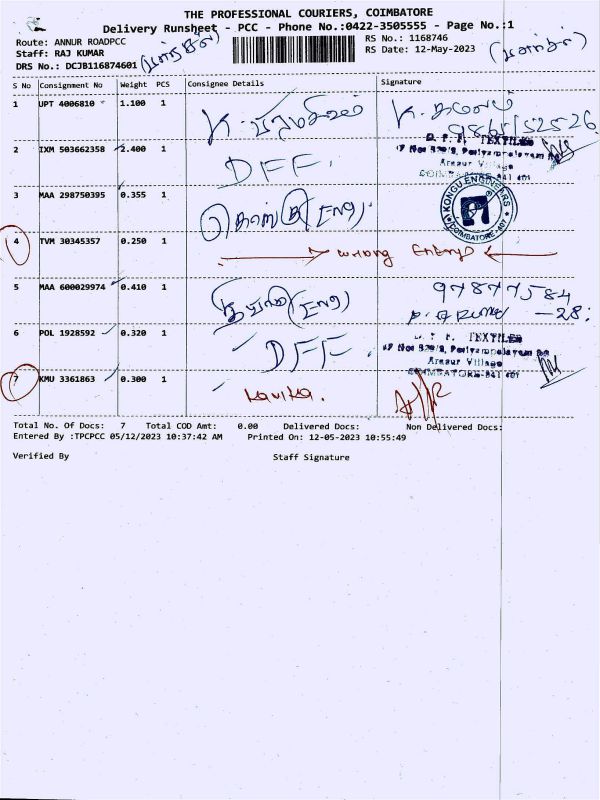 THE PROFESSIONAL COURIERS, COIMBATORE
Delivery Runsheet - PCC - Phone No.:0422-3505555 - Page No.:1
Route: ANNUR ROADPCC
RS No.: 1168746
Staff: RAJ KUMAR
RS Date: 12-May-2023
DRS No.: DCJB116874601
S No Consignment No Weight PCS Consignee Details Signature
1 UPT 4006810 1.100 1
2 IXM 503662358 2.400 1 DFF.
TEXTILES
Arasur Village
COIMBATORE-641 401
3 MAA 298750395 0.355 1 (ENG)
KONGU ENGINEERS
COIMBATORE-407
4 TVM 30345357 0.250 1 wrong Entry
5 MAA 600029974 0.410 1 (ENG)
6 POL 1928592 0.320 1 DFF
TEXTILES
Arasur Village
COIMBATORE-641 401
7 KMU 3361863 0.300 1 Kavika.
Total No. Of Docs: 7 Total COD Amt: 0.00 Delivered Docs: Non Delivered Docs:
Entered By :TPCPCC 05/12/2023 10:37:42 AM Printed On: 12-05-2023 10:55:49
Verified By Staff Signature